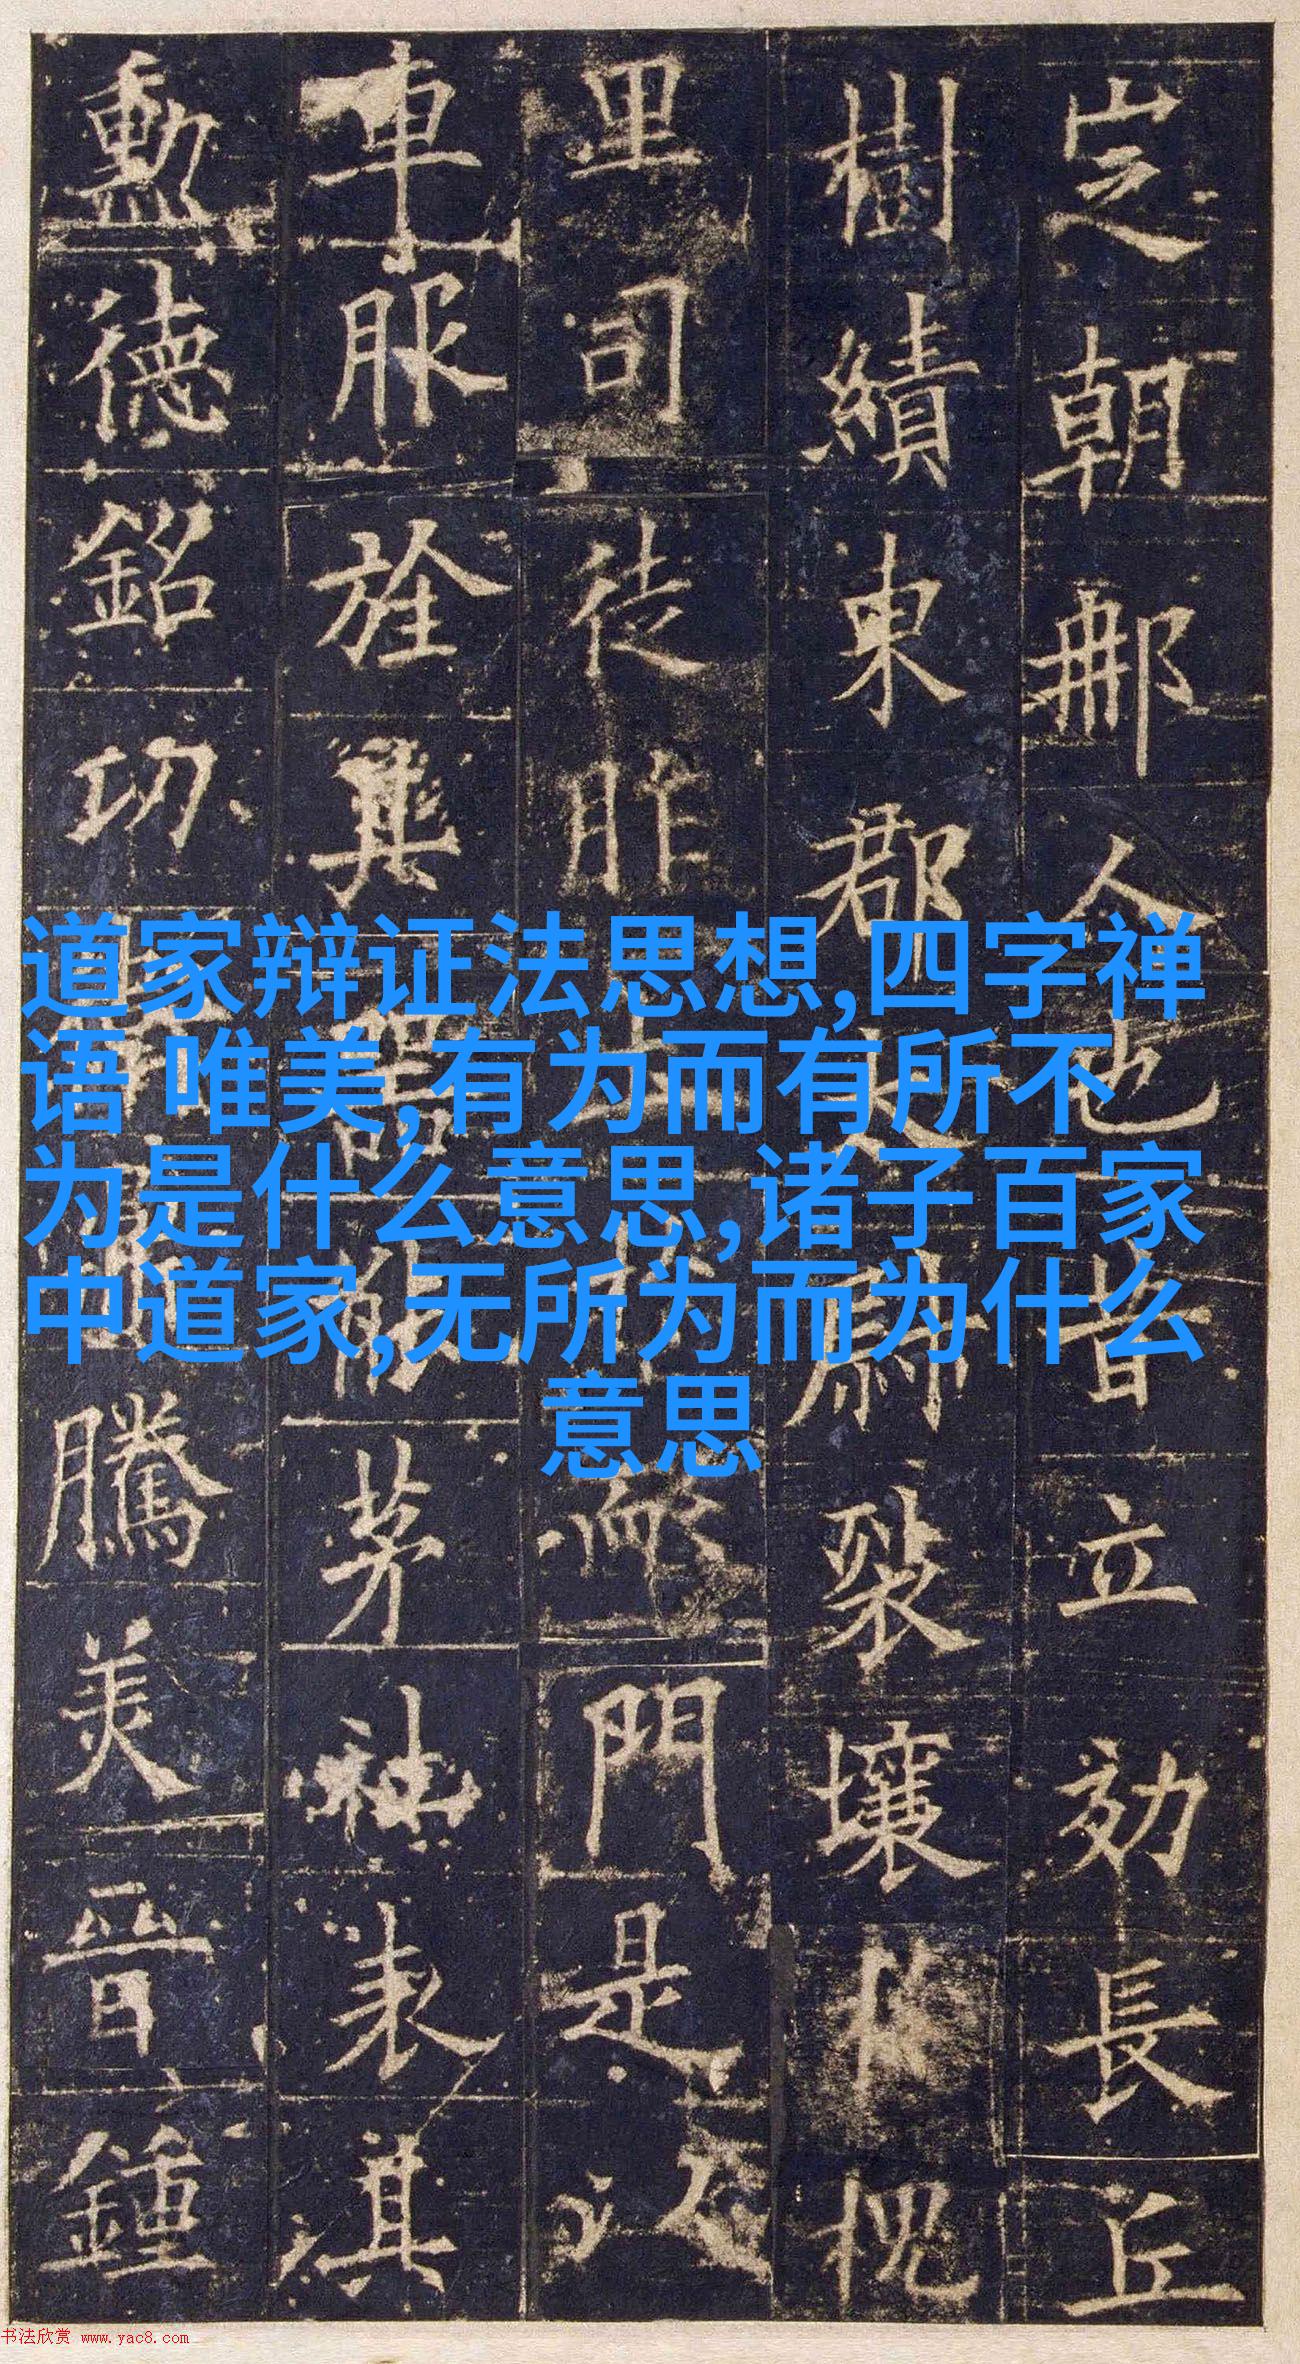 㝎朝那人也昔立効長丘
樹績東郡太尉裂壤槐
里司徒胙土門是
車服旌其器能茅社表其
勳德銘功騰美晉鍾
道家辩证法思想,四字禅
语 唯美,有为而有所不
为是什么意思,诸子百家
中道家,无所为而为什么
意思
书法欣赏 www.yac8.com